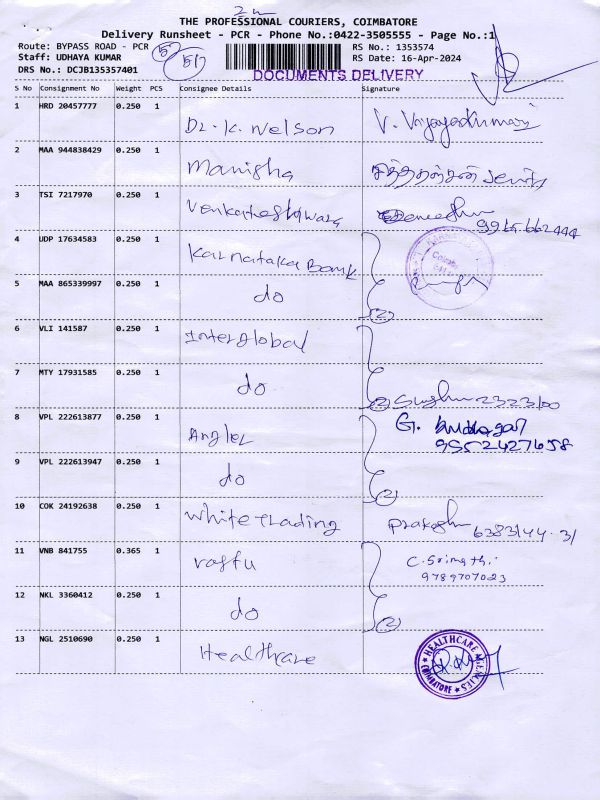 THE PROFESSIONAL COURIERS, COIMBATORE
Delivery Runsheet - PCR - Phone No.:0422-3505555 - Page No.:1
Route: BYPASS ROAD - PCR
RS No.: 1353574
Staff: UDHAYA KUMAR
RS Date: 16-Apr-2024
DRS No.: DCJB135357401
DOCUMENTS DELIVERY
S No Consignment No Weight PCS Consignee Details Signature
1 HRD 20457777 0.250 1 Dr. K. Nelson V. Vijayakumari
2 MAA 944838429 0.250 1 Manisha
3 TSI 7217970 0.250 1 Venkateshwara
4 UDP 17634583 0.250 1 Karnataka Bank
5 MAA 865339997 0.250 1 do (2)
6 VLI 141587 0.250 1 Interglobal
7 MTY 17931585 0.250 1 do (2)
8 VPL 222613877 0.250 1 Angler G.
9552427658
9 VPL 222613947 0.250 1 do (2)
10 COK 24192638 0.250 1 White Trading Prakash
11 VNB 841755 0.365 1 C. Srimathi
9789707023
12 NKL 3360412 0.250 1 do (2)
13 NGL 2510690 0.250 1 Healthcare
HEALTHCARE AGENCIES
COIMBATORE